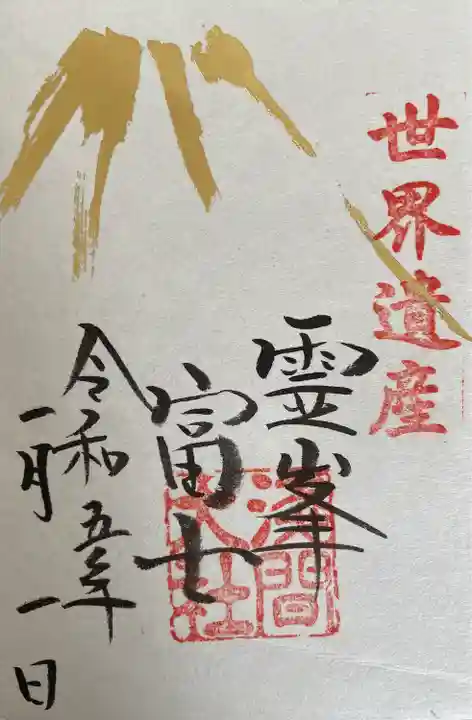 世界遺産
霊峯
富士
浅間
大社
令和五年
一月一日